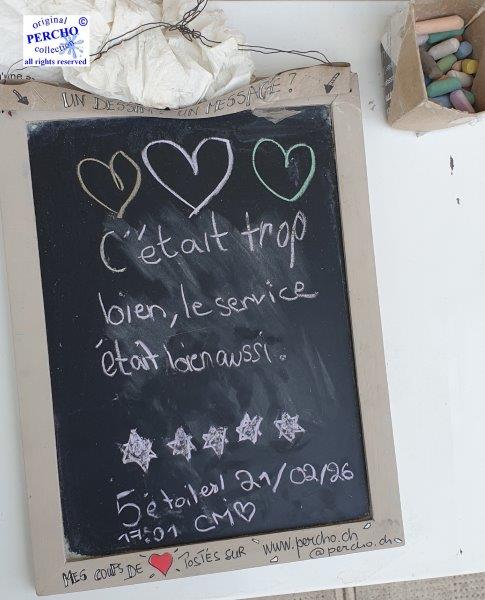 original
PERCHO ©
collection
all rights reserved
UN DESSIN? UN MESSAGE?
C'était trop
bien, le service
était bien aussi.
5 étoiles! 21/02/26
17:01 CM♡
MES COUPS DE ❤ POSTÉS SUR www.percho.ch
@percho.ch